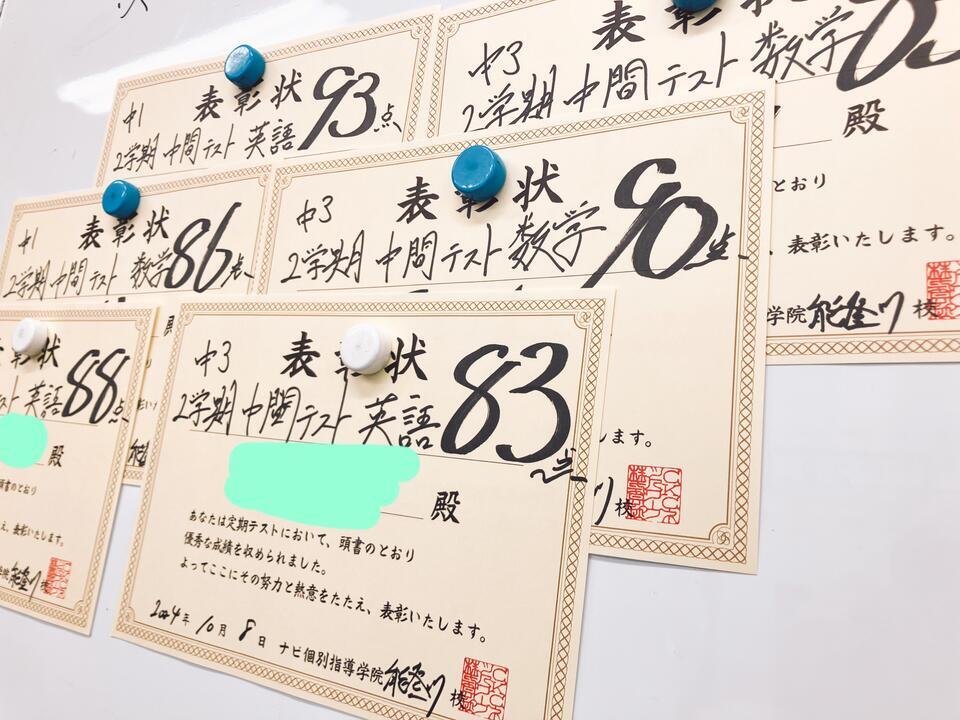 表彰状
中1
2学期 中間テスト 英語 93点
表彰状
中3
2学期 中間テスト 数学
殿
とおり
、表彰いたします。
学院 能登川 校
表彰状
中1
2学期 中間テスト 数学 86点
表彰状
中3
2学期 中間テスト 数学 90点
します。
校
彰状
スト 英語 88点
殿
頭書のとおり
え、表彰いたします。
能登川 校
表彰状
中3
2学期 中間テスト 英語 83点
殿
あなたは定期テストにおいて、頭書のとおり
優秀な成績を収められました。
よってここにその努力と熱意をたたえ、表彰いたします。
2024年 10月 8日 ナビ個別指導学院 能登川 校